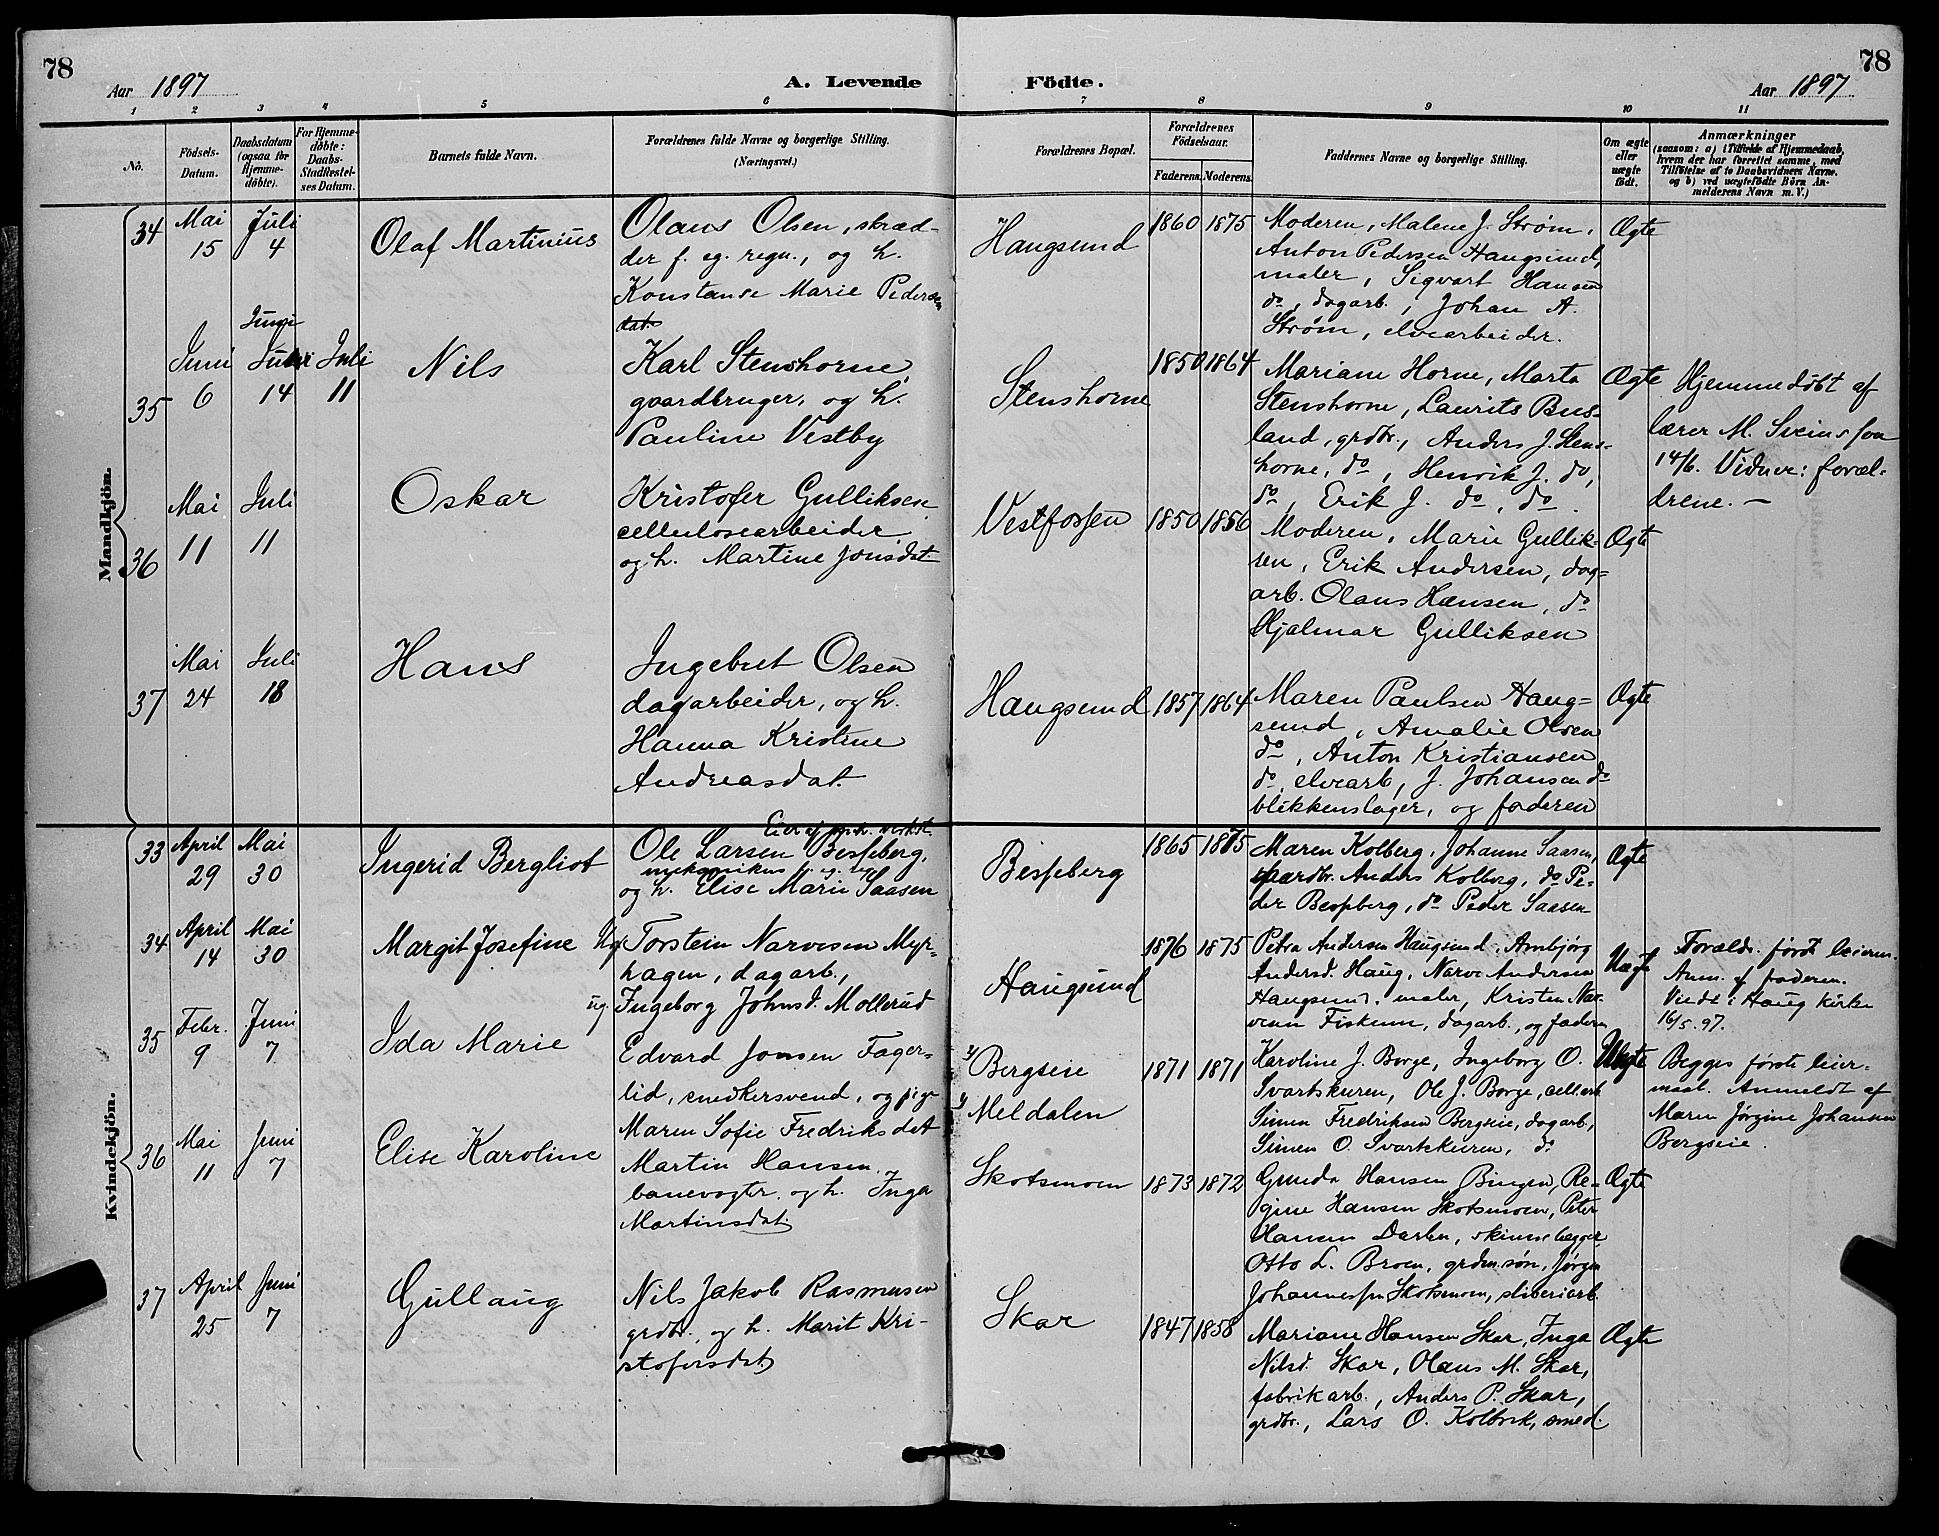 78
Aar 1897
A. Levende
Födte.
Aar 1897
78
1 2 3 4 5 6 7 8 9 10 11
No.
Födsels-
Datum.
Daabsdatum
(ogsaa for
Hjemme-
döbte).
For Hjemme-
döbte:
Daabs-
Stadfæstel-
ses Datum.
Barnets fulde Navn.
Forældrenes fulde Navne og borgerlige Stilling.
(Næringsvei.)
Forældrenes Bopæl.
Forældrenes
Födselsaar.
Faderens. Moderens.
Faddernes Navne og borgerlige Stilling.
Om ægte
eller
uægte
født.
Anmærkninger
(saasom: a) i Tilfælde af Hjemmedaab,
hvem der har forrettet samme, med
Tilföielse af to Daabsvidners Navne,
og b) ved uægtefödte Börn An-
melderens Navn m. V.)
Mandkjön.
34
Mai
15
Juli
4
Olaf Martinius
Olaus Olsen, skræd-
der f. eg. regn., og h.
Konstanse Marie Pedersen
dat.
Haugsund
1860 1875
Moderen, Malene J. Strøm,
Anton Pedersen Haugsund,
maler, Sigvart Hansen
do, dagarb., Johan A.
Strøm, elvearbeider.
Ægte
35
Juni
6
Juni
Juni
14
Juli
11
Nils
Karl Stenshorne
gaardbruger, og h.
Pauline Vestby
Stenshorne
1850 1864
Mariane Horne, Marta
Stenshorne, Laurits Bus-
land, grdbr., Anders J. Stens-
horne, do, Henrik J. do,
do, Erik J. do, do.
Ægte
Hjemmedøbt af
lærer M. Sveinsson
14/6. Vidner: foræl-
drene. —
36
Mai
11
Juli
11
Oskar
Kristofer Gulliksen
cellulosearbeider,
og h. Martine Jonsdat
Vestfossen
1850 1856
Moderen, Marie Gullik-
sen, Erik Andersen, dag-
arb. Olaus Hansen, do
Hjalmar Gulliksen
Ægte
37
Mai
24
Juli
18
Hans
Ingebret Olsen
dagarbeider, og h.
Hanna Kristine
Andreasdat.
Haugsund
1857 1864
Maren Paulsen Haug-
sund, Amalie Olsen
do, Anton Kristiansen
do, elvearb, J. Johansen do
blikkenslager, og faderen
Ægte
Kvindekjön.
33
April
29
Mai
30
Ingerid Bergliot
Eier af mek. verkst.
Ole Larsen Besseberg,
mekanikus
og h. Elise Marie Saasen
Besseberg
1865 1875
Maren Kolberg, Johanne Saasen,
gaardbr. Anders Kolberg, do Pe-
der Besseberg, do Peder Saasen
Ægte
34
April
14
Mai
30
Margit Josefine
Ugf. Torstein Narvesen Myr-
hagen, dagarb.,
ug. Ingeborg Johnsd. Mollerud
Haugsund
1876 1875
Petra Andersen Haugsund, Arnbjørg
Andersd. Haug, Narve Andersen
Haugsund, maler, Kristen Nar-
vesen Fiskum, dagarb., og faderen
Uægte
Foræld. første leierm.
Anm. af faderen.
Viede i Haug kirke
16/5.97.
35
Febr.
9
Juni
7
Ida Marie
Edvard Jonsen Fager-
lid, snedkersvend, og pige
Maren Sofie Fredriksdat
Bergseie
Meldalen
1871 1871
Karoline J. Borge, Ingeborg O.
Svartskuren, Ole J. Borge, cell.arb
Simen Fredriksen Bergseie, dagarb,
Simen O. Svartskuren, do
Uægte
Begges første leier-
maal. Anmeldt af
Maren Jørgine Johansen
Bergseie.
36
Mai
11
Juni
7
Elise Karoline
Martin Hansen,
banevogter, og h. Inga
Martinsdat.
Skotsmoen
1873 1872
Gunda Hansen Bingen, Re-
gine Hansen Skotsmoen, Peter
Hansen Darbu, skinnelægger,
Otto L. Broen, grdm.søn, Jørgen
Johannessen Skotsmoen, sliberiarb.
Ægte
37
April
25
Juni
7
Gullaug
Nils Jakob Rasmusen
grdbr., og h. Marit Kri-
stofersdat.
Skar
1847 1858
Mariane Hansen Skar, Inga
Nilsd. Skar, Olaus M. Skar,
fabrikarb., Anders P. Skar,
grdbr., Lars O. Kolbræk, smed.
Ægte